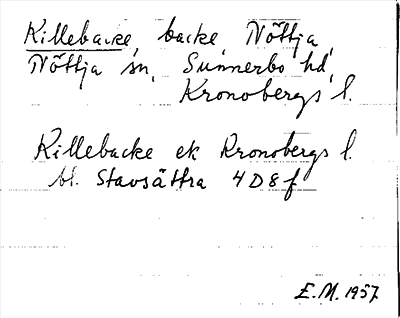 Killebacke, backe, Nöttja,
Nöttja sn, Sunnerbo hd,
Kronobergs l.
Killebacke ek Kronobergs l.
bl. Stavsättra 4D8f
E.M. 1957